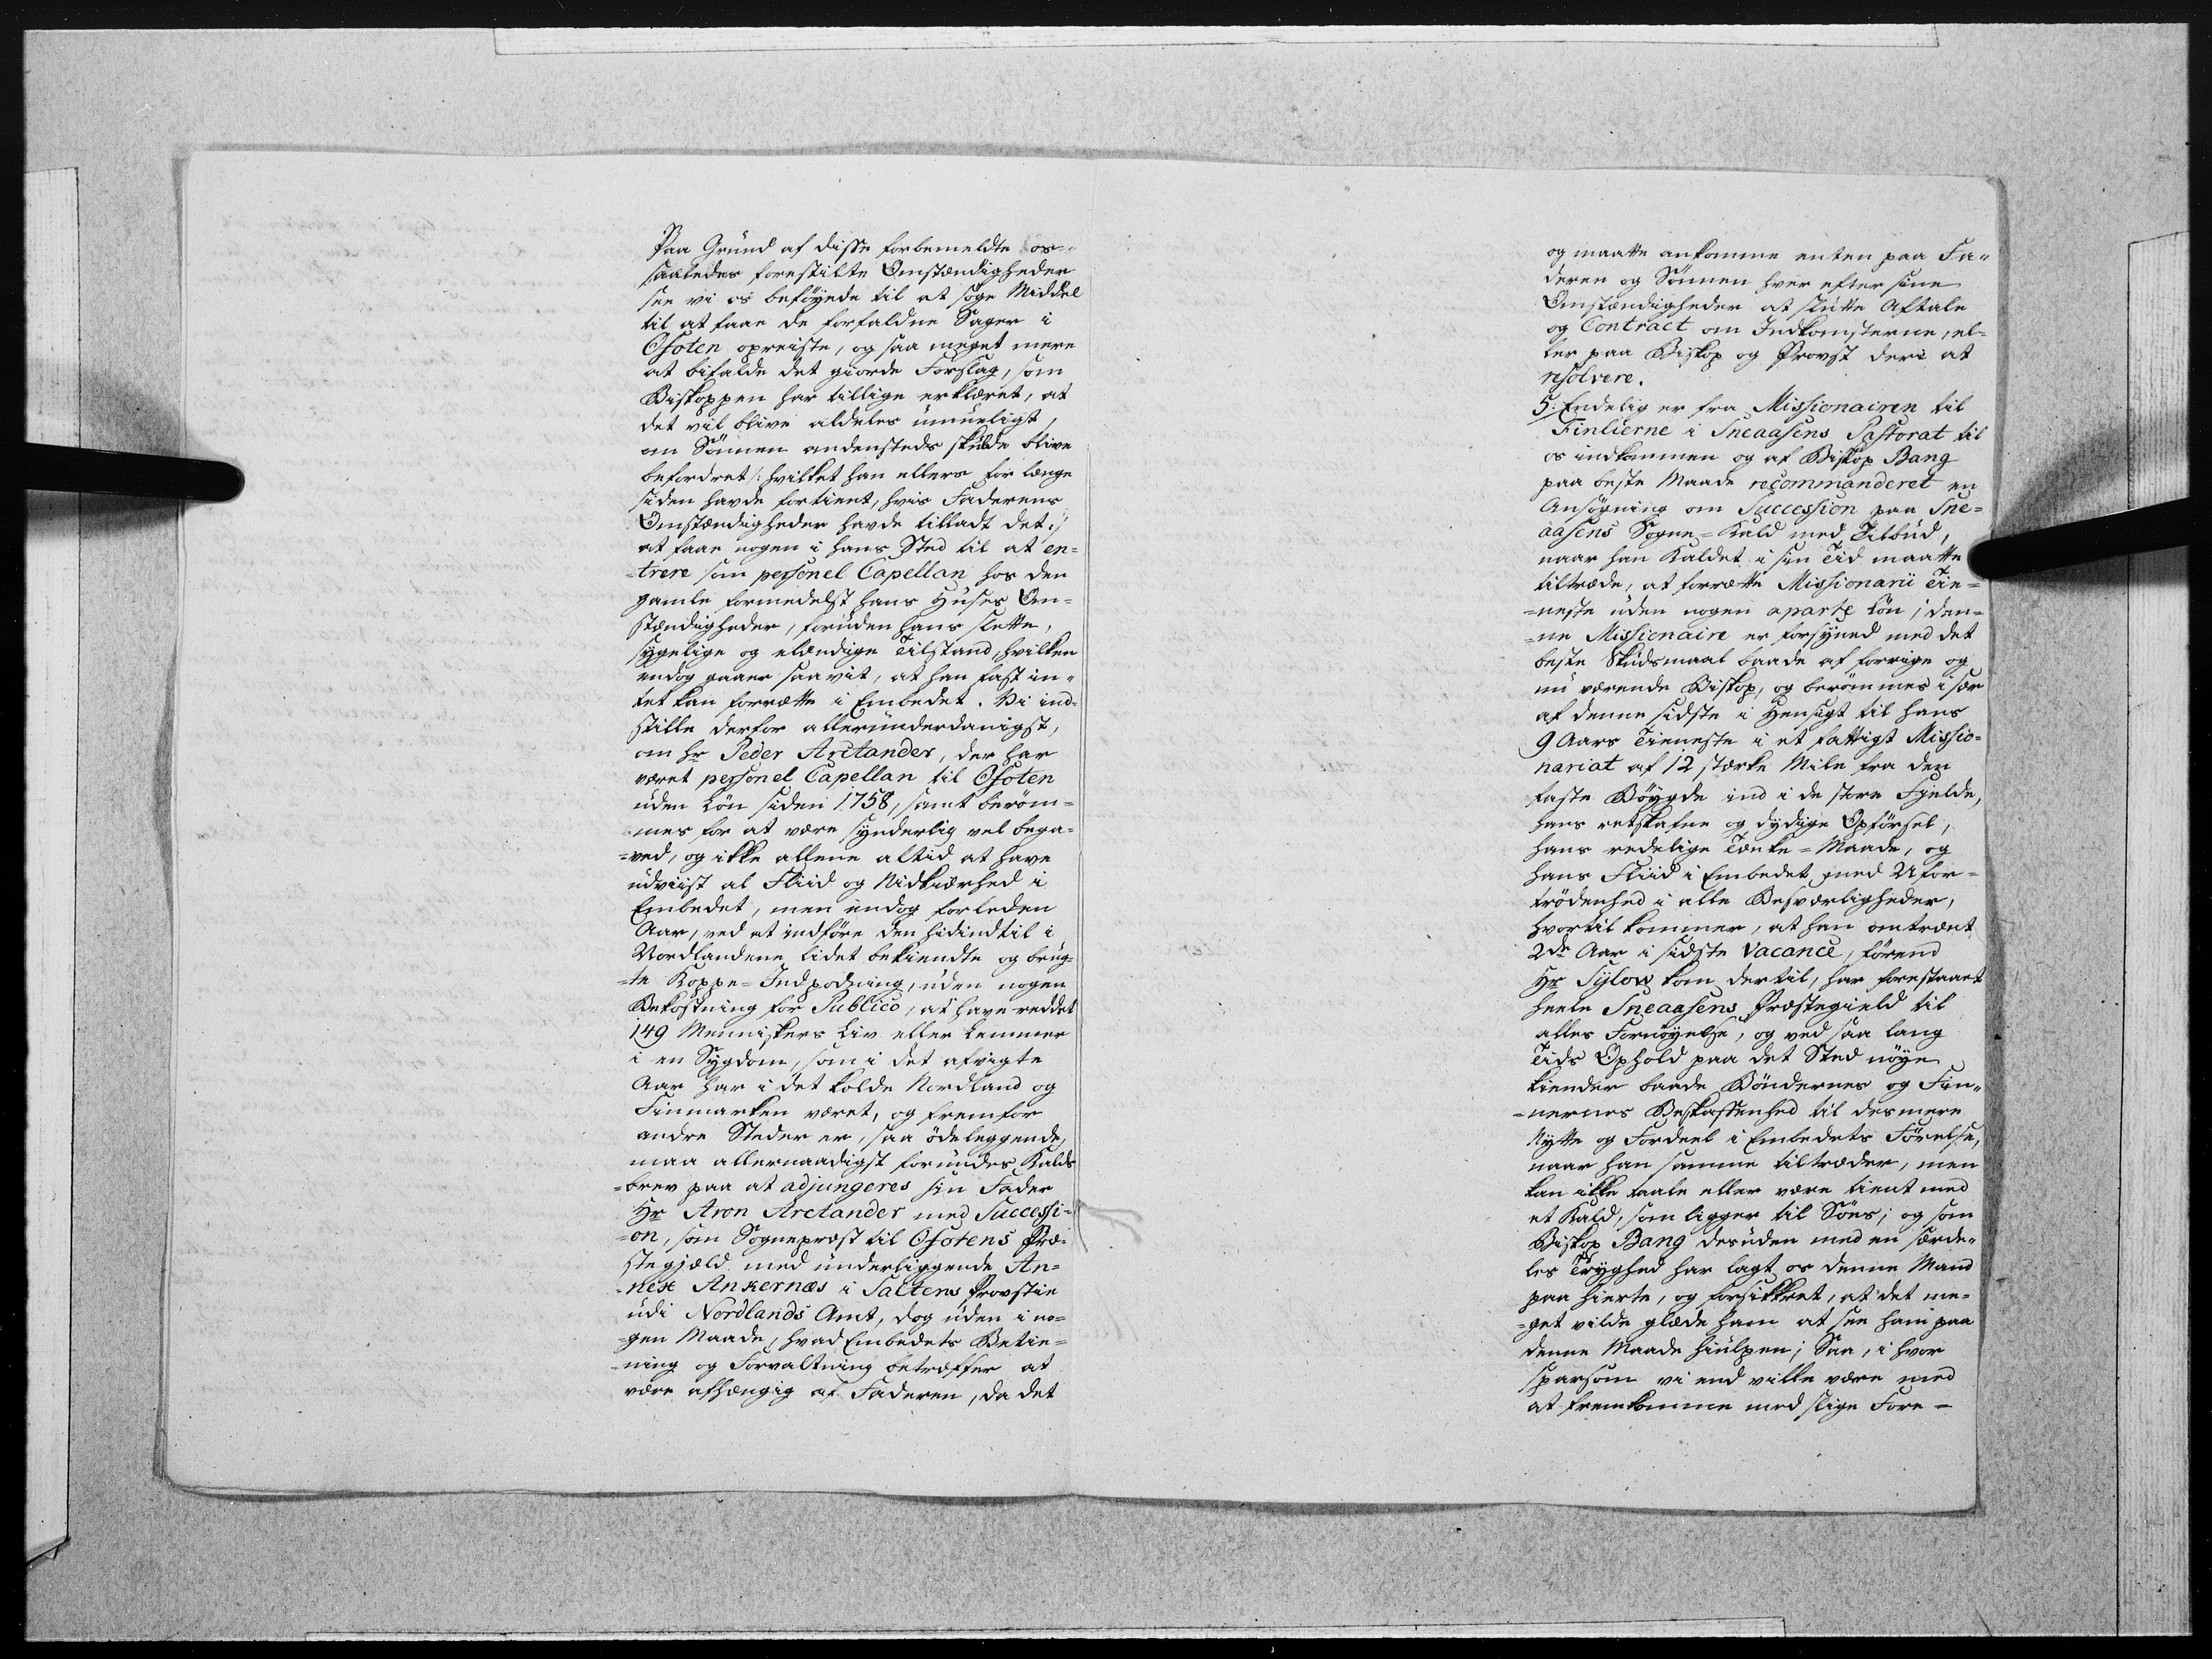 Paa Grund af disse forbemeldte os
saaledes forestilte Omstændigheder
see vi os beföyede til at söge Middel
til at faae de forfaldne Sager i
Ofoten opreiste, og saa meget mere
at bifalde det giorde Forslag, som
Biskoppen har tillige erklæret, at
det vil blive aldeles umueligt,
om Sönnen andensteds skulde blive
befordret /: hvilket han ellers for længe
siden havde fortient, hvis Faderens
Omstændigheder havde tilladt det :/
at faae nogen i hans Sted til at en=
=trere som personel Capellan hos den
gamle formedelst hans Huses Om=
stændigheder, foruden hans slette,
sygelige og elændige Tilstand, hvilken
endog gaaer saavit, at han fast in=
tet kan forrætte i Embedet. Vi ind=
stille derfor allerunderdanigst,
om Hr Peder Arctander, der har
været personel Capellan til Ofoten
uden Lön siden 1758, samt beröm=
=mes for at være synderlig vel bega=
=ved, og ikke allene altid at have
udviist al Fliid og Nidkiærhed i
Embedet, men endog forleden
Aar, ved at indföre den hidindtil i
Nordlandene lidet bekiendte og brug=
=te Koppe=Indpodning, uden nogen
Bekostning for Publico, at have reddet
149 Menniskers Liv eller Lemmer
i en Sygdom, som i det afvigte
Aar har i det kolde Nordland og
Finmarken været, og fremfor
andre Steder er, saa ödeleggende,
maa allernaadigst forundes Kalds
=brev paa at adjungeres sin Fader
Hr Aron Arctander med Successi=
=on, som Sognepræst til Ofotens Præ=
stegjæld med underliggende An=
=nex Ankernæs i Saltens Provstie
udi Nordlands Amt, dog uden i no=
=gen Maade, hvad Embedets Betie=
=ning og Forvaltning betræffer at
være afhængig af Faderen, da det
og maatte ankomme enten paa Fa=
deren og Sönnen hver efter sine
Omstændigheder at slutte Aftale
og Contract om Indkomsterne, el=
ler paa Biskop og Provst deri at
resolvere.
5: Endelig er fra Missionairen til
Finlierne i Sneaasens Pastorat til
os indkommen og af Biskop Bang
paa beste Maade recommanderet en
Ansögning om Succession paa Sne=
aasens Sogne=Kald med Tilbud,
naar han Kaldet i sin Tid maatte
tiltræde, at forrætte Missionarii Tie=
=neste uden nogen aparte Lön; den=
=ne Missionaire er forsyned med det
beste Skudsmaal baade af forrige og
nu værende Biskop, og berömmes i sær
af denne sidste i Hensigt til hans
9 Aars Tieneste i et fattigt Missio=
nariat af 12 stærke Mile fra den
faste Böygde ind i de store Fjelde,
hans retskafne og dydige Opförsel,
hans redelige Tænke=Maade, og
hans Fliid i Embedet med Ufor=
trödenhed i alle Besværligheder,
hvortil kommer, at han omtrent
2de Aar i sidste Vacance, förend
Hr Sylow kom dertil, har forestaaet
heele Sneaasens Præstegield til
alles Fornöyelse, og ved saa lang
Tids Ophold paa det Sted nöye
kiender baade Böndernes og Fin=
=nernes Beskaffenhed til desmere
Nytte og Fordeel i Embedets Förelse,
naar han samme tiltræder, men
kan ikke taale eller være tient med
et Kald, som ligger til Söes; og som
Biskop Bang desuden med en særde=
les Tryghed har lagt os denne Mand
paa Hierte, og forsikkret, at det me=
=get vilde glæde ham at see ham paa
denne Maade hiulpen; Saa, i hvor
sparsom vi end ville være med
at fremkomme med slige Fore=